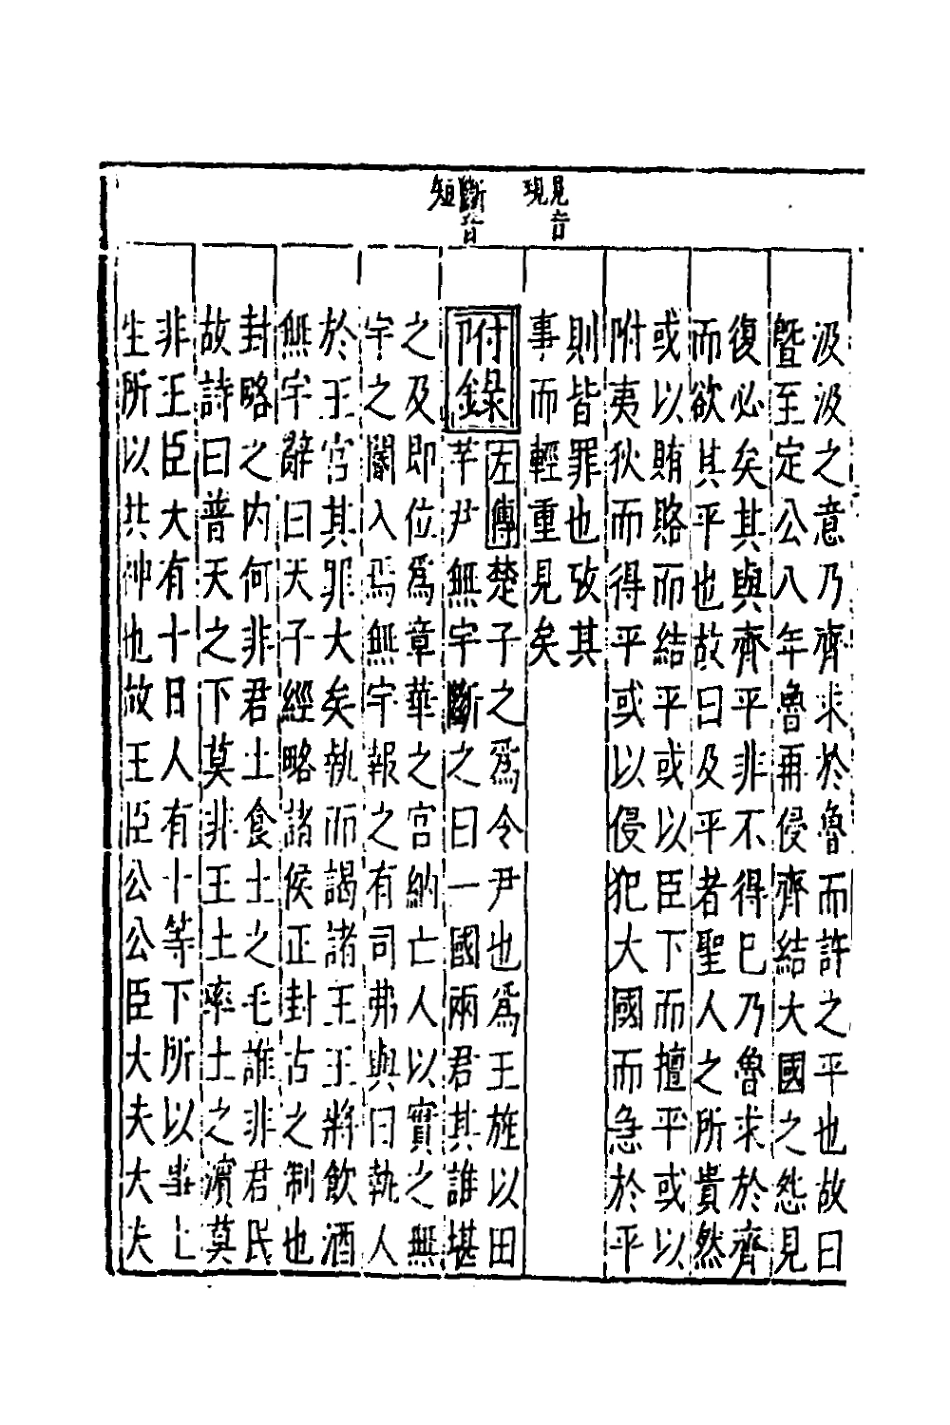 見音
現
斷音
短
汲汲之意乃齊求於魯而許之平也故曰
暨至定公八年魯再侵齊結大國之怨見
復必矣其與齊平非不得已乃魯求於齊
而欲其平也故曰及平者聖人之所貴然
或以賄賂而結平或以臣下而擅平或以
附夷狄而得平或以侵犯大國而急於平
則皆罪也攷其
事而輕重見矣
附錄
左傳楚子之爲令尹也爲王旌以田
芋尹無宇斷之曰一國兩君其誰堪
之及即位爲章華之宮納亡人以實之無
宇之閽入焉無宇執之有司弗與曰執人
於王宮其罪大矣執而謁諸王王將飲酒
無宇辭曰天子經略諸侯正封古之制也
封略之內何非君土食土之毛誰非君民
故詩曰普天之下莫非王土率土之濱莫
非王臣天有十日人有十等下所以事上
生所以共神也故王臣公公臣大夫大夫